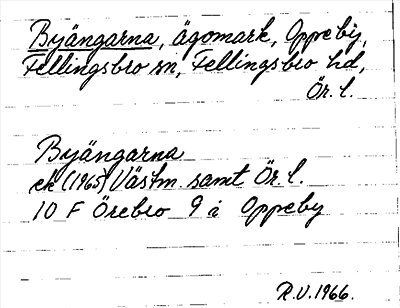 Byängarna, ägomark, Oppeby,
Fellingsbro sn, Fellingsbro hd,
Ör. l.
Byängarna
ek (1965) Västm. samt Ör. l.
10 F Örebro 9 i Oppeby
R.V. 1966.